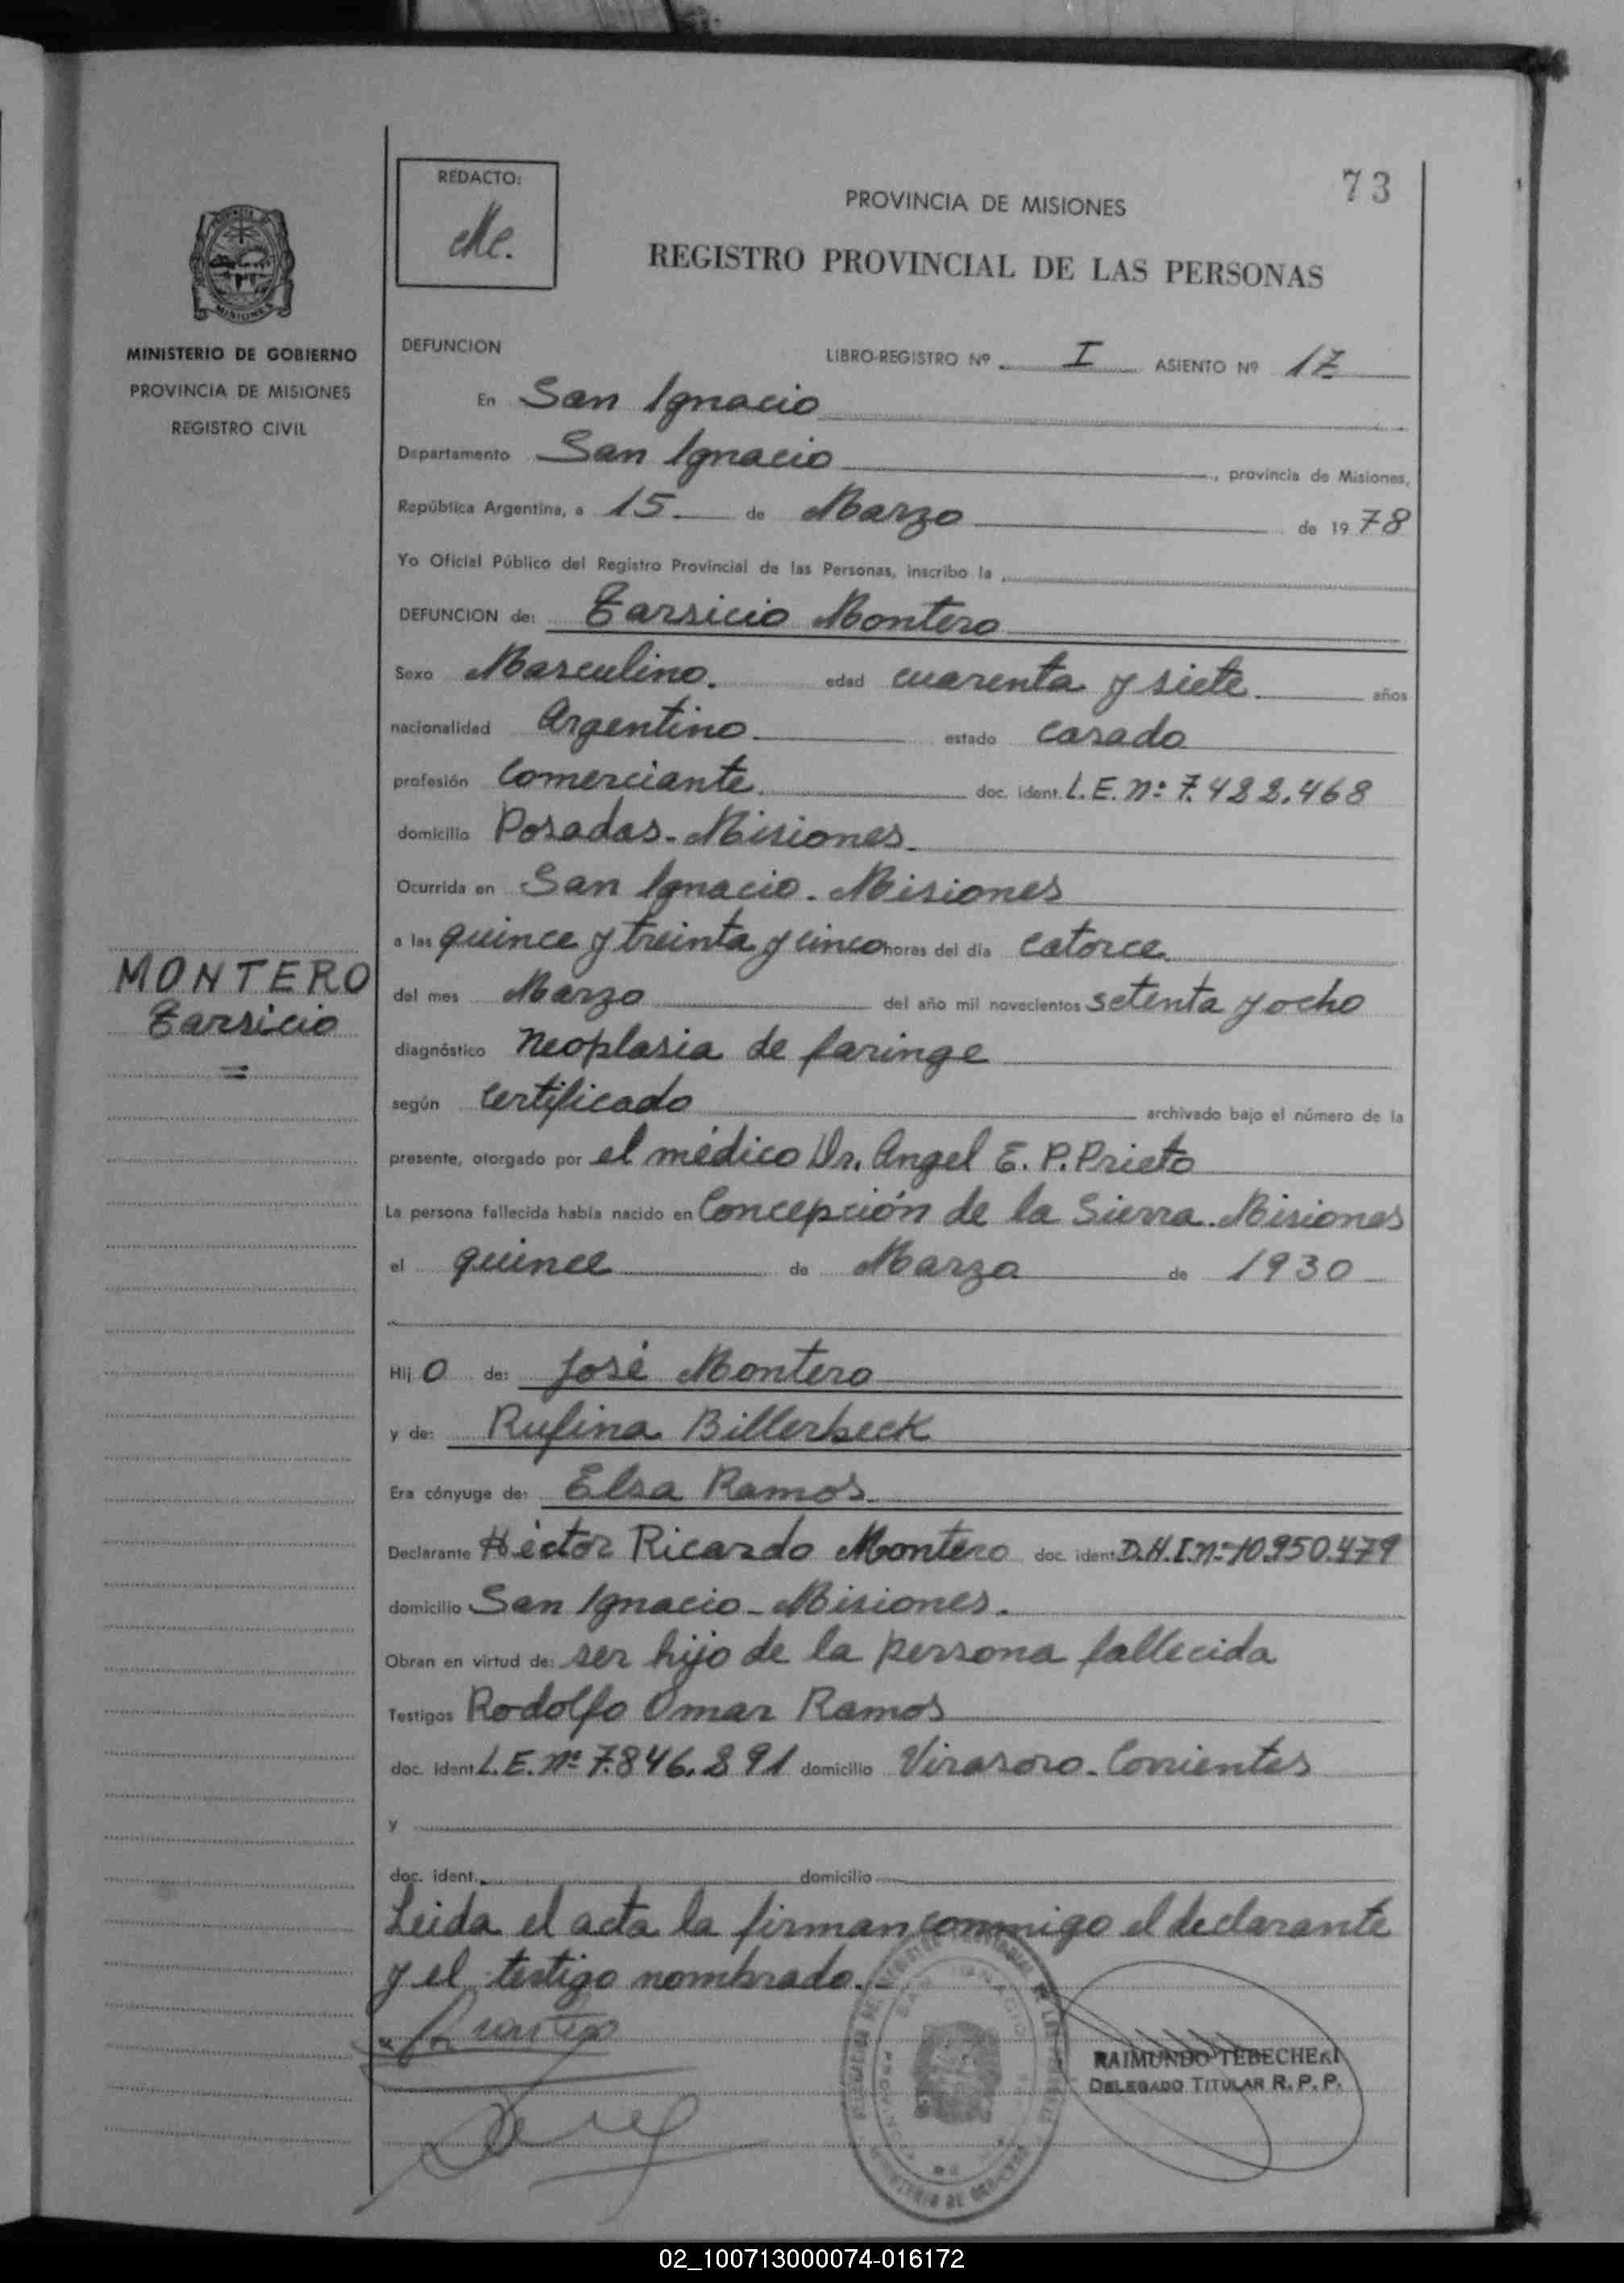 73
REDACTO:
Me.
PROVINCIA DE MISIONES
REGISTRO PROVINCIAL DE LAS PERSONAS
MISIONES
MINISTERIO DE GOBIERNO
PROVINCIA DE MISIONES
REGISTRO CIVIL
MONTERO
Tarsicio
=
DEFUNCION LIBRO-REGISTRO Nº I ASIENTO Nº 17
En San Ignacio
Departamento San Ignacio, provincia de Misiones,
República Argentina, a 15 de Marzo de 1978
Yo Oficial Público del Registro Provincial de las Personas, inscribo la
DEFUNCION de: Tarsicio Montero
Sexo Masculino. edad cuarenta y siete años
nacionalidad Argentino estado casado
profesión Comerciante. doc. ident. L.E. nº 7.422.468
domicilio Posadas-Misiones
Ocurrida en San Ignacio-Misiones
a las quince y treinta y cinco horas del día catorce
del mes Marzo del año mil novecientos setenta y ocho
diagnóstico Neoplasia de faringe
según certificado archivado bajo el número de la
presente, otorgado por el médico Dr. Angel E. P. Prieto
La persona fallecida había nacido en Concepción de la Sierra-Misiones
el quince de Marzo de 1930
Hij o de: José Montero
y de: Rufina Billerbeck
Era cónyuge de: Elsa Ramos
Declarante Héctor Ricardo Montero doc. ident. D.N.I. nº 10.950.479
domicilio San Ignacio-Misiones.
Obran en virtud de: ser hijo de la persona fallecida
Testigos Rodolfo Omar Ramos
doc. ident. L.E. nº 7.846.291 domicilio Virasoro-Corrientes
y
doc. ident. domicilio
Leida el acta la firman conmigo el declarante
y el testigo nombrado.-
RAIMUNDO TEBECHERI
DELEGADO TITULAR R. P. P.
02_100713000074-016172